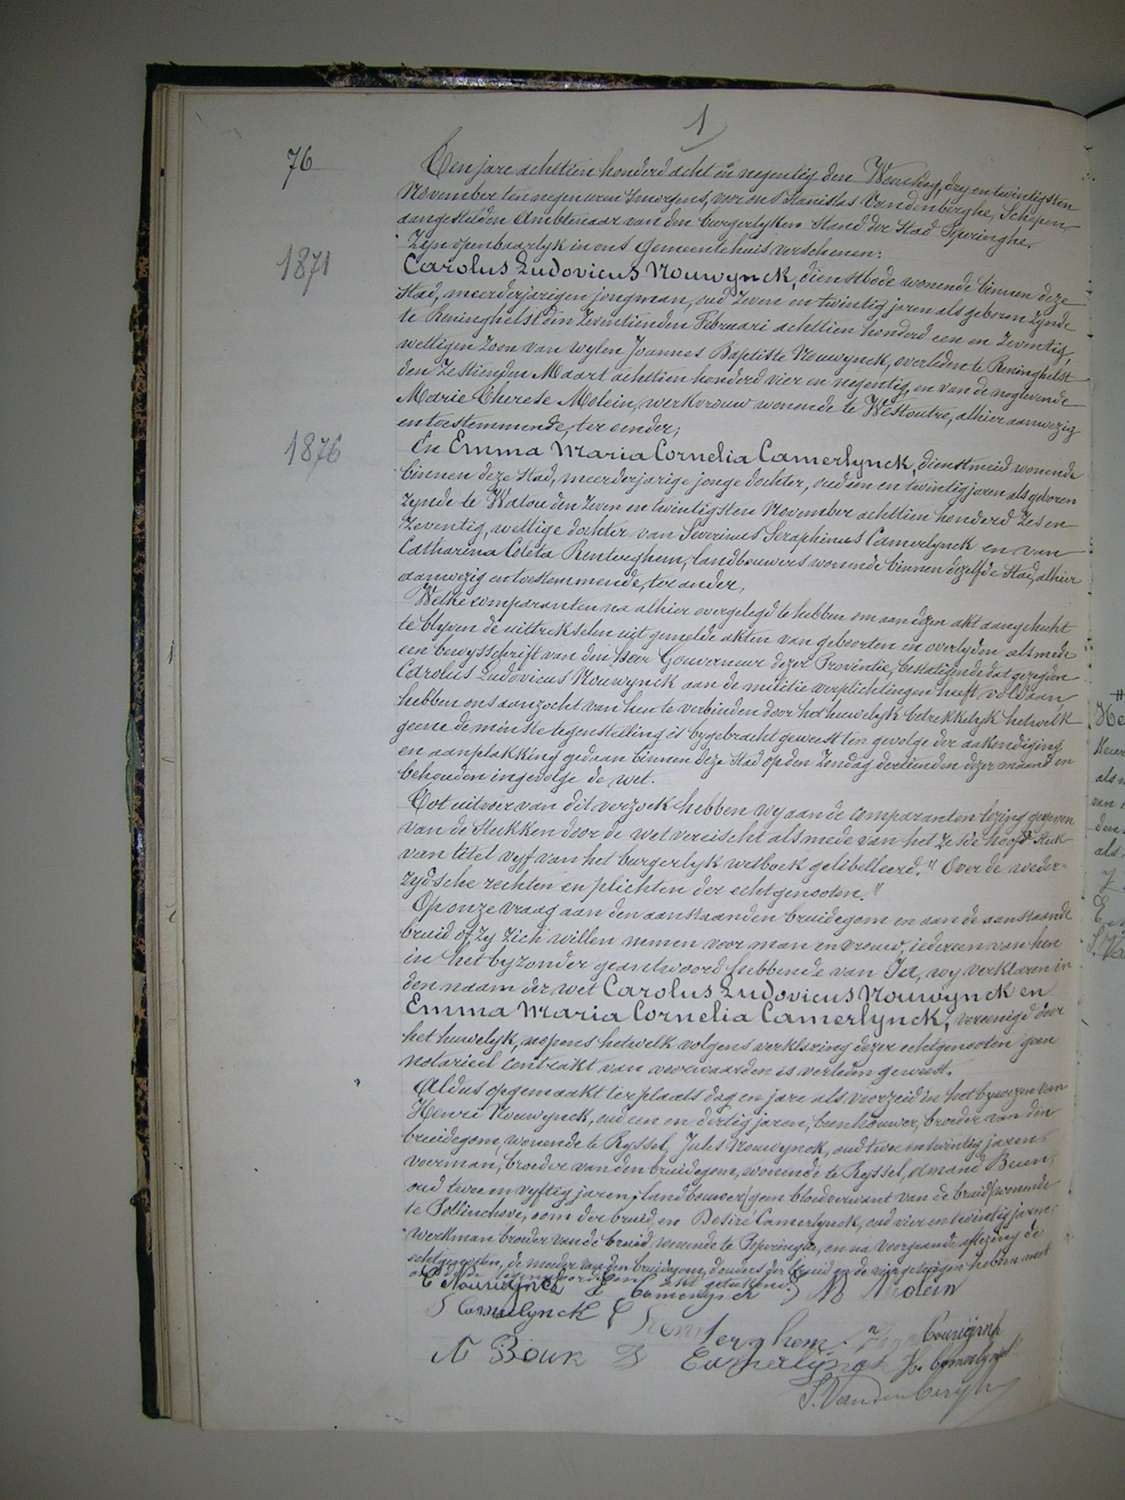 1
76
Ten jare achttien honderd acht en negentig den Woensdag, dry en twintigsten
November ten negen uren 's morgens, voor ons Stanislas Vandenberghe, Schepen,
aangestelden Ambtenaar van den burgerlyken Stand der Stad Poperinghe,
Zyn openbaarlyk in ons Gemeentehuis verschenen:
1871
Carolus Ludovicus Nouwynck, dienstbode wonende binnen deze
Stad, meerderjarigen jongman, oud zeven en twintig jaren als geboren zynde
te Reninghelst den zeventienden Februari achttien honderd een en zeventig,
wettigen zoon van wylen Joannes Baptiste Nouwynck, overleden te Reninghelst
den zestienden Maart achttien honderd vier en negentig, en van de nog levende
Marie Therese Molein, werkvrouw wonende te Westoutre, alhier aanwezig
en toestemmende, ter eender;
1876
En Emma Maria Cornelia Camerlynck, dienstmeid wonende
binnen deze Stad, meerderjarige jonge dochter, oud een en twintig jaren als geboren
zynde te Watou den zeven en twintigsten November achttien honderd zes en
zeventig, wettige dochter van Severinus Seraphinus Camerlynck en van
Catharina Coleta Renterghem, landbouwers wonende binnen dezelfde Stad, alhier
aanwezig en toestemmende, ter ander,
Welke comparanten na alhier overgelegd te hebben om aan dezen akt aangehecht
te blyven de uittrekselen uit gemelde akten van geboorten en overlyden alsmede
een bewysschrift van den Heer Gouverneur dezer Provintie, bestatigende dat gezegden
Carolus Ludovicus Nouwynck aan de militie verplichtingen heeft voldaan,
hebben ons aanzocht van hen te verbinden door het huwelyk betrekkelyk hetwelk
geene de minste tegenstelling is bygebracht geweest ten gevolge der aakondiging
en aanplakking gedaan binnen deze Stad op den Zondag dertienden dezer maand en
behouden ingevolge de wet.
Tot uitvoer van dit verzoek hebben wy aan de comparanten lezing gegeven
van de stukken door de wet vereischt alsmede van het zesde hoofdstuk
van titel vyf van het burgerlyk wetboek gelibelleerd. "Over de weder-
zydsche rechten en plichten der echtgenooten."
Op onze vraag aan den aanstaanden bruidegom en aan de aanstaande
bruid of zy zich willen nemen voor man en vrouw, iedereen van hen
in het byzonder geantwoord hebbende van Ja, wy verklaren in
den naam der wet Carolus Ludovicus Nouwynck en
Emma Maria Cornelia Camerlynck, vereenigd door
het huwelyk, nopens hetwelk volgens verklaring dezer echtgenooten geen
notarieel contrakt van voorwaarden is verleden geweest.
Aldus opgemaakt ter plaats dag en jare als voorzeid in het bywezen van
Henri Nouwynck, oud een en dertig jaren, broeder van den
bruidegom, wonende te Ryssel, Jules Nouwynck, oud twee en twintig jaren
voerman, broeder van den bruidegom, wonende te Ryssel, Amand Beun,
oud twee en vyftig jaren, landbouwer (geen bloedverwant van de bruid) wonende
te Pollinchove, oom der bruid, en Desiré Camerlynck, oud vier en twintig jaren,
werkman broeder van de bruid, wonende te Poperinghe, en na voorgaande aflezing de
echtgenooten, de moeder van den bruidegom, de ouders der bruid en de vier getuigen hebben met
ons dezen akt geteekend.
C Nouwynck E Camerlynck M Molein
S Camerlynck C Renterghem
A Beun D Camerlynck
S. Vandenberghe